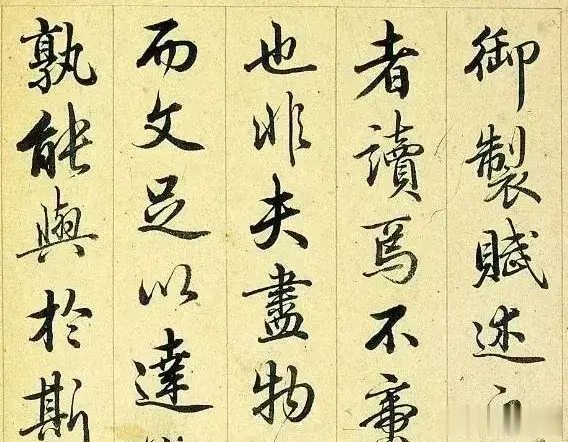 御製賦述
者讀焉不啻
也非夫盡物
而文足以達
孰能與於斯